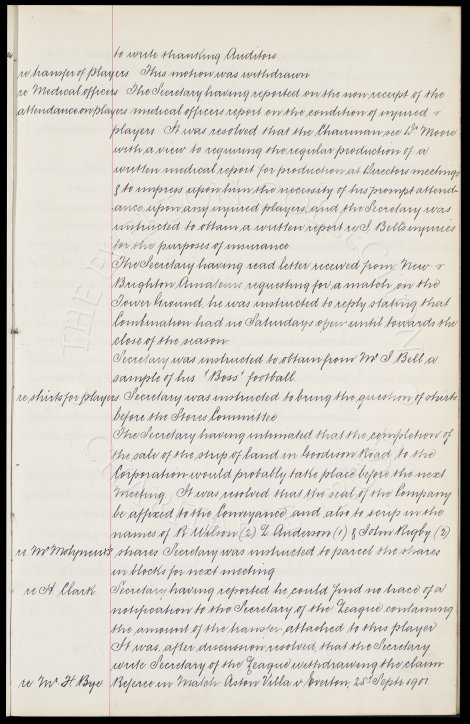 to write thanking Auditors
re transfer of players This motion was withdrawn
re Medical officers The Secretary having reported on the non receipt of the
attendance on players medical officers report on the condition of injured
players It was resolved that the Chairman see Dr Moore
with a view to requiring the regular production of a
written medical report for production at Directors meetings
& to impress upon him the necessity of his prompt attend-
ance upon any injured players, and the Secretary was
instructed to obtain a written report re J. Bells injuries
for the purposes of insurance
The Secretary having read letter received from New
Brighton Amateurs requesting for a match on the
Tower Ground, he was instructed to reply stating that
Combination had no Saturdays open until towards the
close of the season
Secretary was instructed to obtain from Mr J Bell a
sample of his "Boss" football
re shirts for players Secretary was instructed to bring the question of shirts
before the Stores Committee
The Secretary having intimated that the completion of
the sale of the strip of land in Goodison Road to the
Corporation would probably take place before the next
Meeting It was resolved that the seal of the Company
be affixed to the Conveyance and also to scrip in the
names of R Wilson (2) Anderson (1) & John Rigby (2)
re Mr Molyneux's shares Secretary was instructed to parcel the shares
in blocks for next meeting
re H. Clark Secretary having reported he could find no trace of a
notification to the Secretary of the League containing
the amount of the transfer attached to this player
It was, after discussion resolved, that the Secretary
write Secretary of the League withdrawing the claim
re Mr H Bye Referee in Match Aston Villa v Everton, 25th Sept. 1901